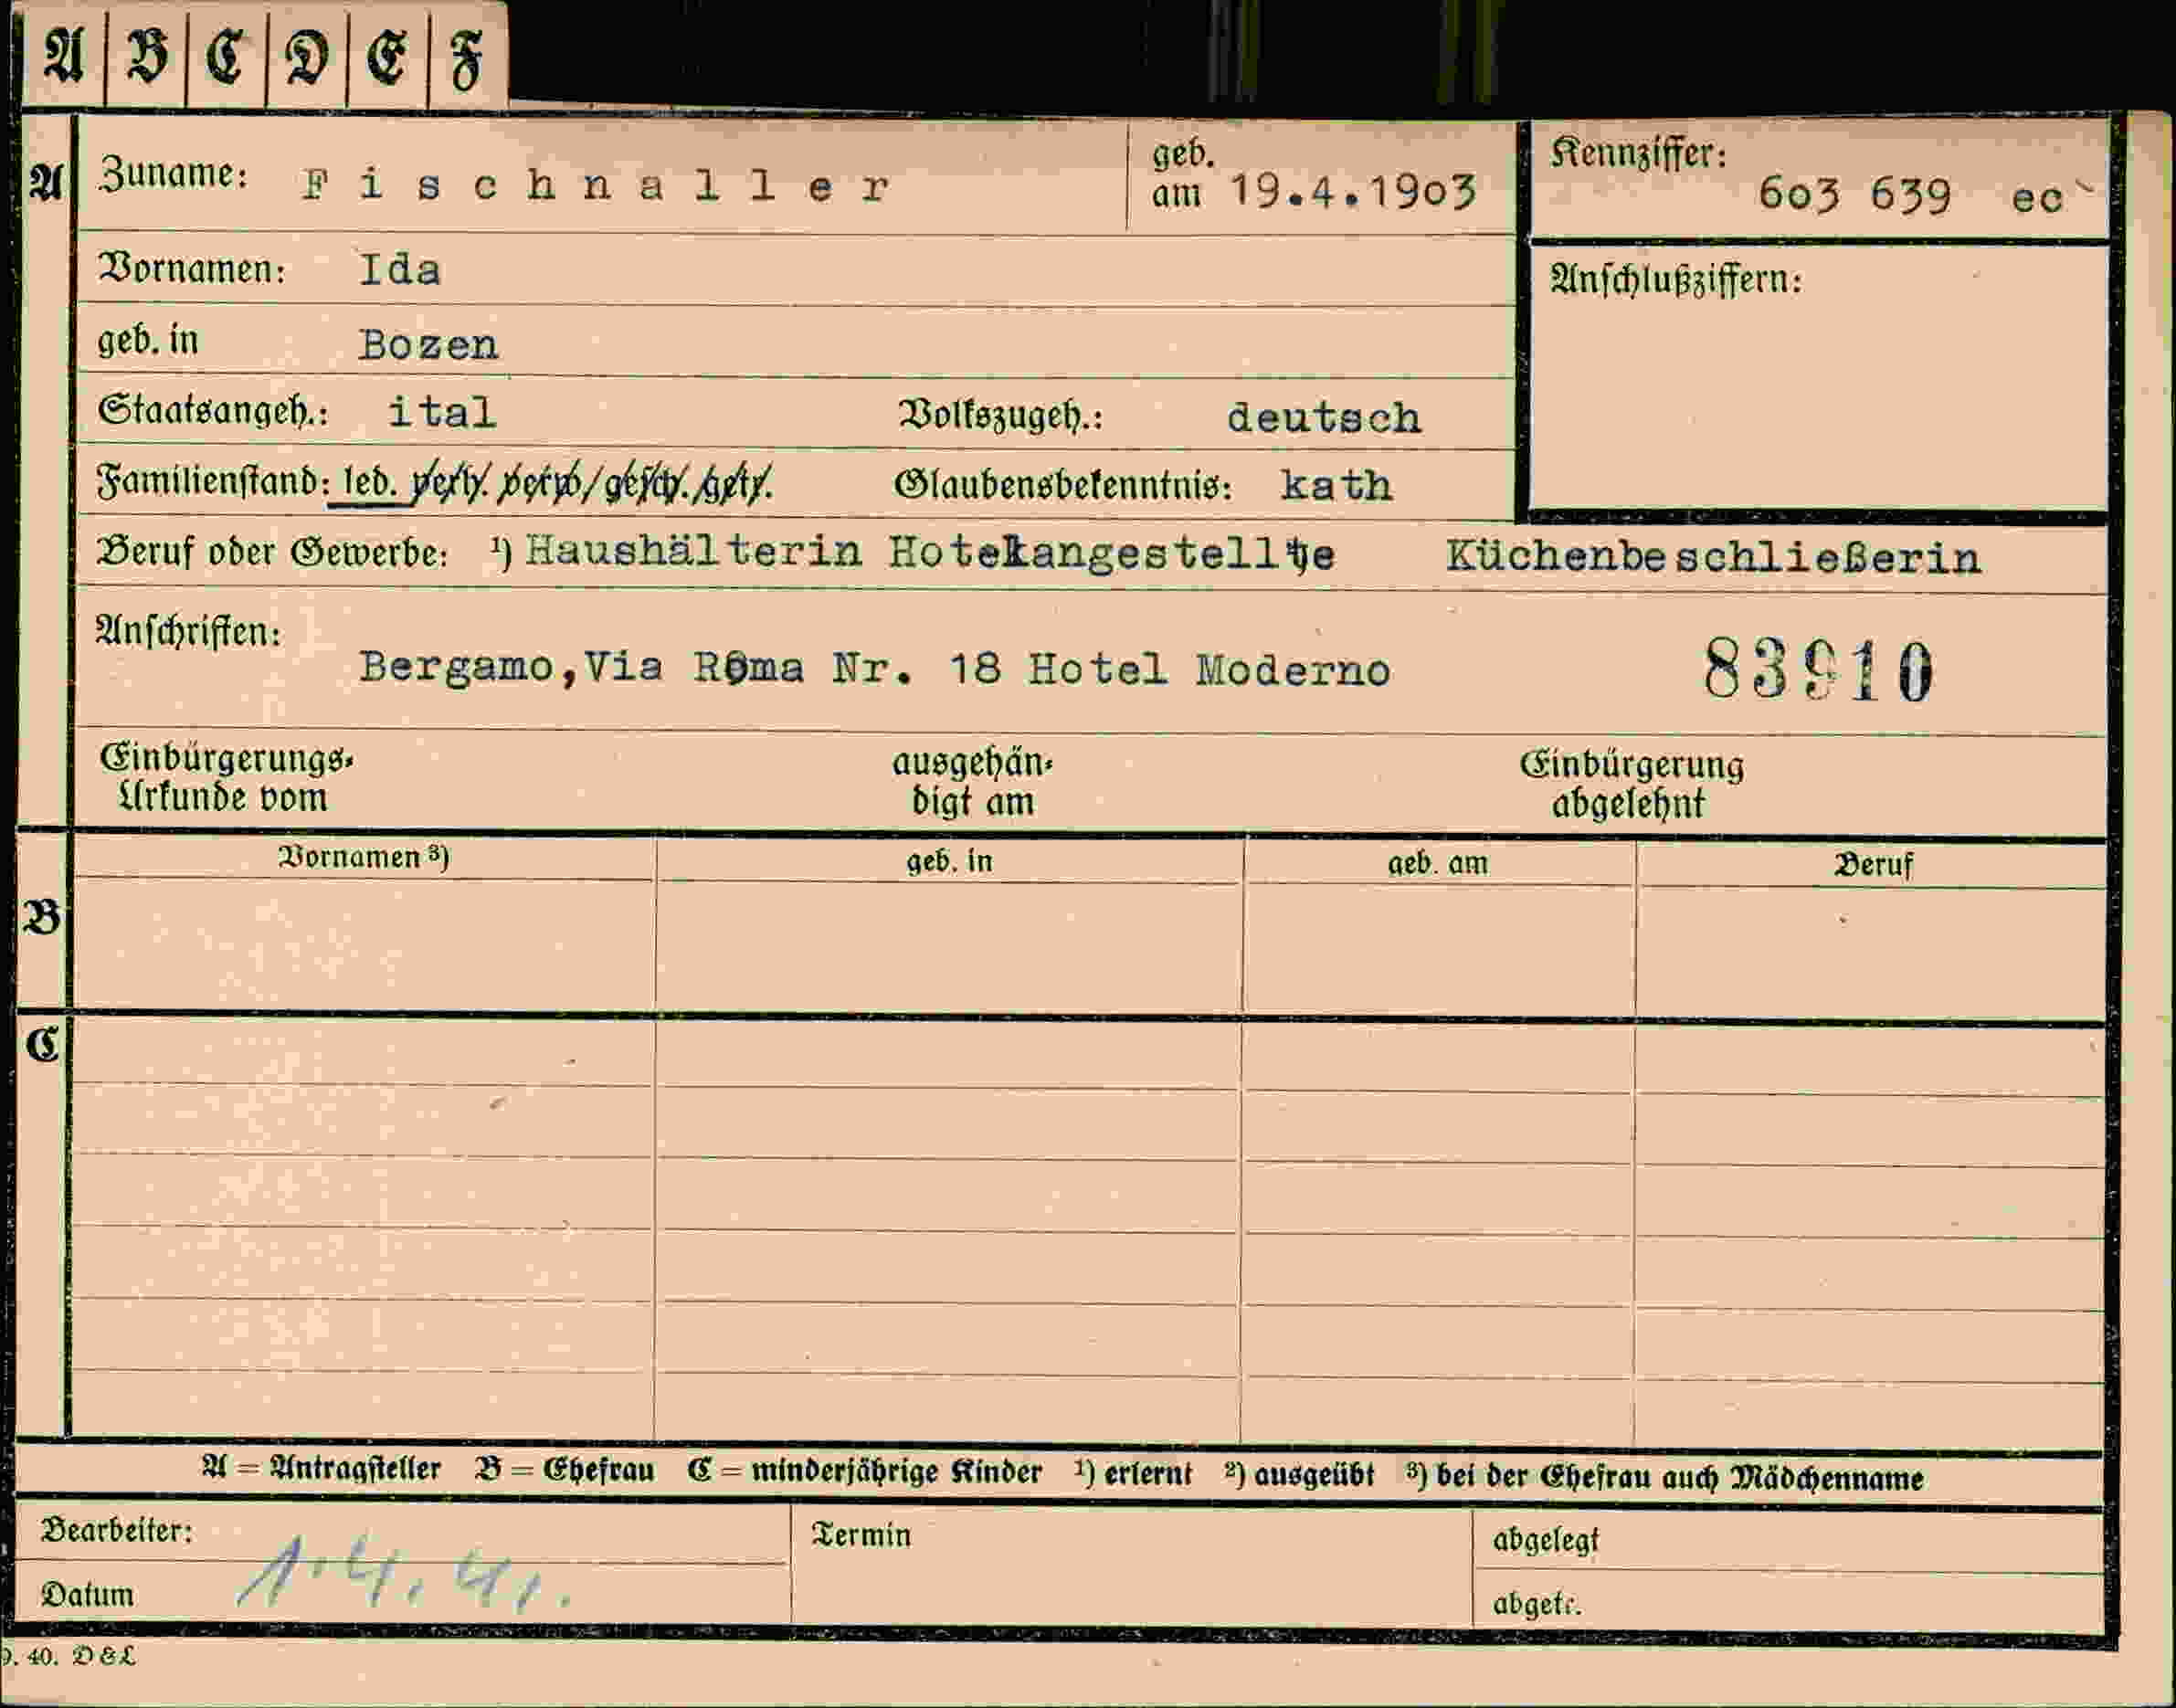 A B C D E F
A Zuname: Fischnaller geb. am 19.4.1903 Kennziffer: 603 639 ec
Vornamen: Ida Anschlußziffern:
geb. in Bozen
Staatsangeh.: ital Volkszugeh.: deutsch
Familienstand: led. verh. verw. gesch. getr. Glaubensbekenntnis: kath
Beruf oder Gewerbe: ¹) Haushälterin Hotelangestellte Küchenbeschließerin
Anschriften:
Bergamo,Via Roma Nr. 18 Hotel Moderno 83910
Einbürgerungs- ausgehän- Einbürgerung
Urkunde vom digt am abgelehnt
Vornamen ³) geb. in geb. am Beruf
B
C
A = Antragsteller B = Ehefrau C = minderjährige Kinder ¹) erlernt ²) ausgeübt ³) bei der Ehefrau auch Mädchenname
Bearbeiter: Termin abgelegt
Datum 1.4.41. abgetr.
9. 40. D&L